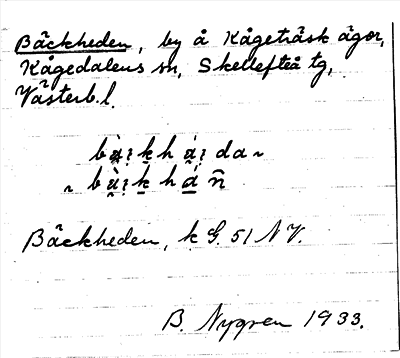 Bäckheden, by å Kågeträsk ägor,
Kågedalens sn, Skellefteå tg,
Västerb.l.
Bäckheden, k G. 51 NV.
B. Nygren 1933.